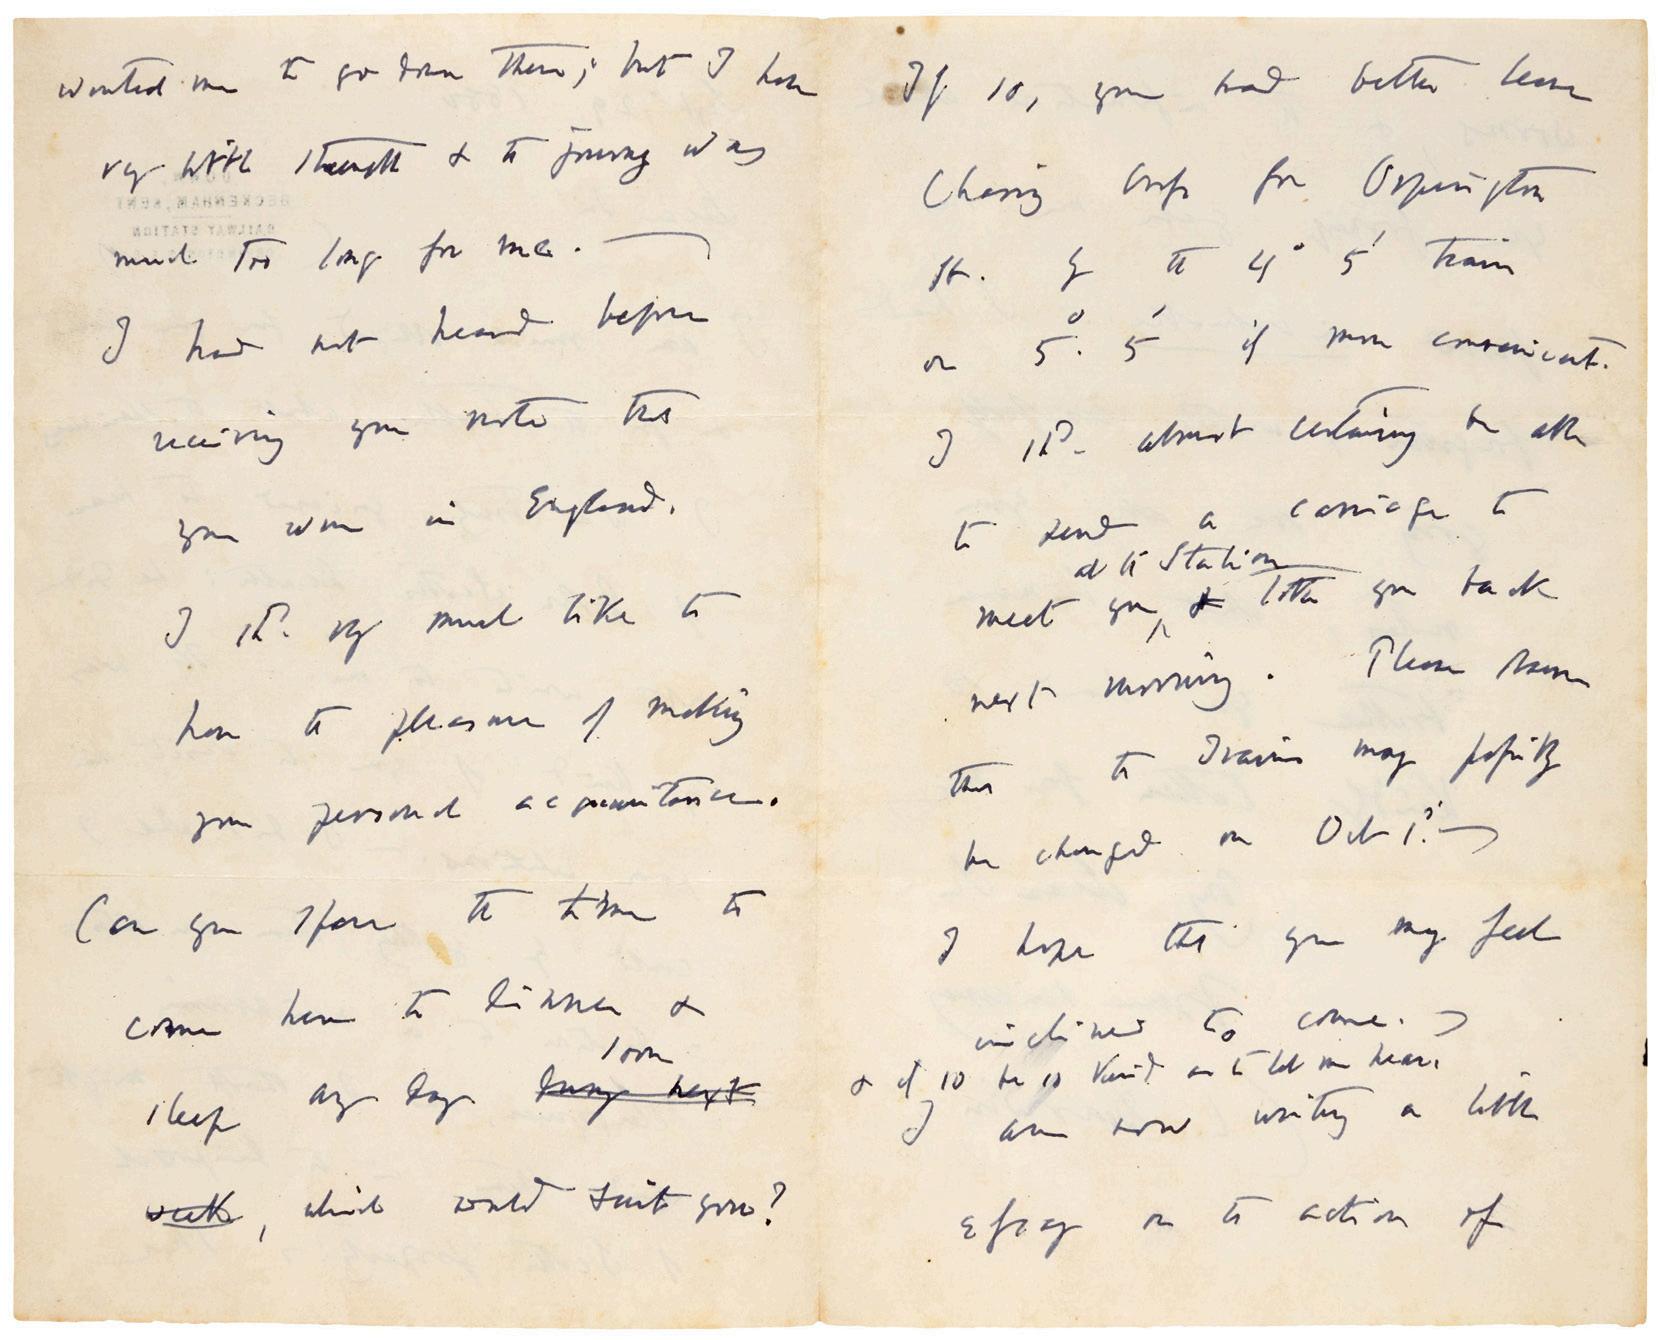 wanted me to go down there; but I have
very little strength & the journey was
much too long for me. —
I had not heard before
receiving your note that
you were in England.
I shd. very much like to
have the pleasure of making
your personal acquaintance.
Can you spare the time to
come here to dinner &
soon
sleep any day during next
week, which would suit you?
If so, you had better leave
Charing Cross for Orpington
St. by the 4° 5' train
or 5°. 5' if more convenient.
I shd. almost certainly be able
to send a carriage to
at the Station
meet you, & take you back
next morning. Please
that the Trains may possibly
be changed on Oct 1st. —
I hope that you may feel
inclined to come. —
& if so be so kind as to let me hear.
I am now writing a little
essay on the action of
BECKENHAM, KENT
RAILWAY STATION